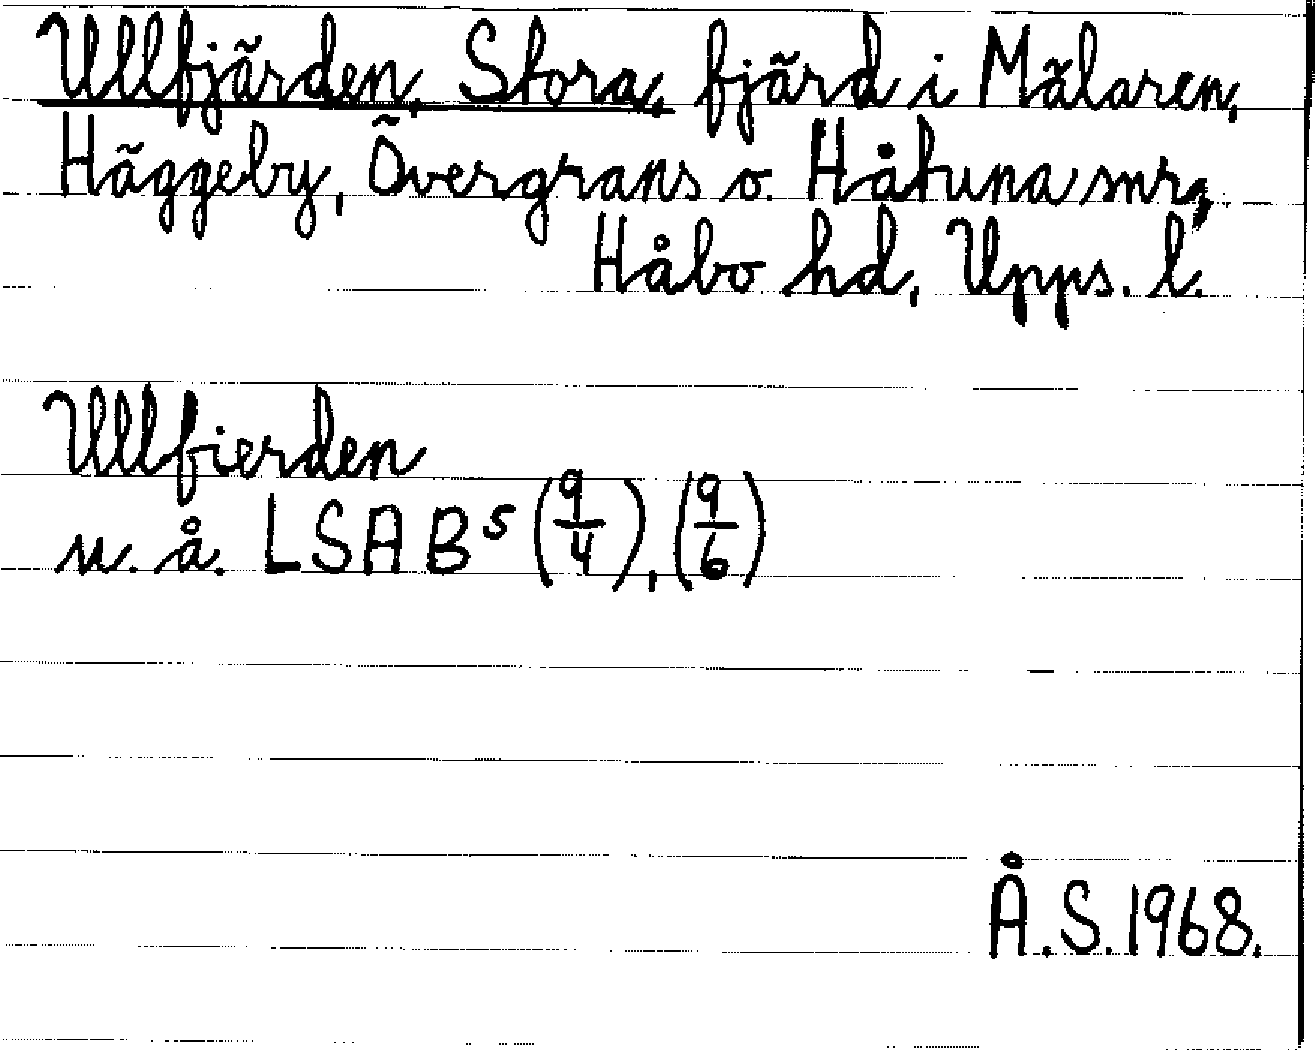 Ullfjärden, Stora, fjärd i Mälaren,
Häggeby, Övergrans o. Håtuna snr,
Håbo hd, Upps. l.
Ullfierden
u. å. LSA B⁵ (9/4), (9/6)
Å.S. 1968.